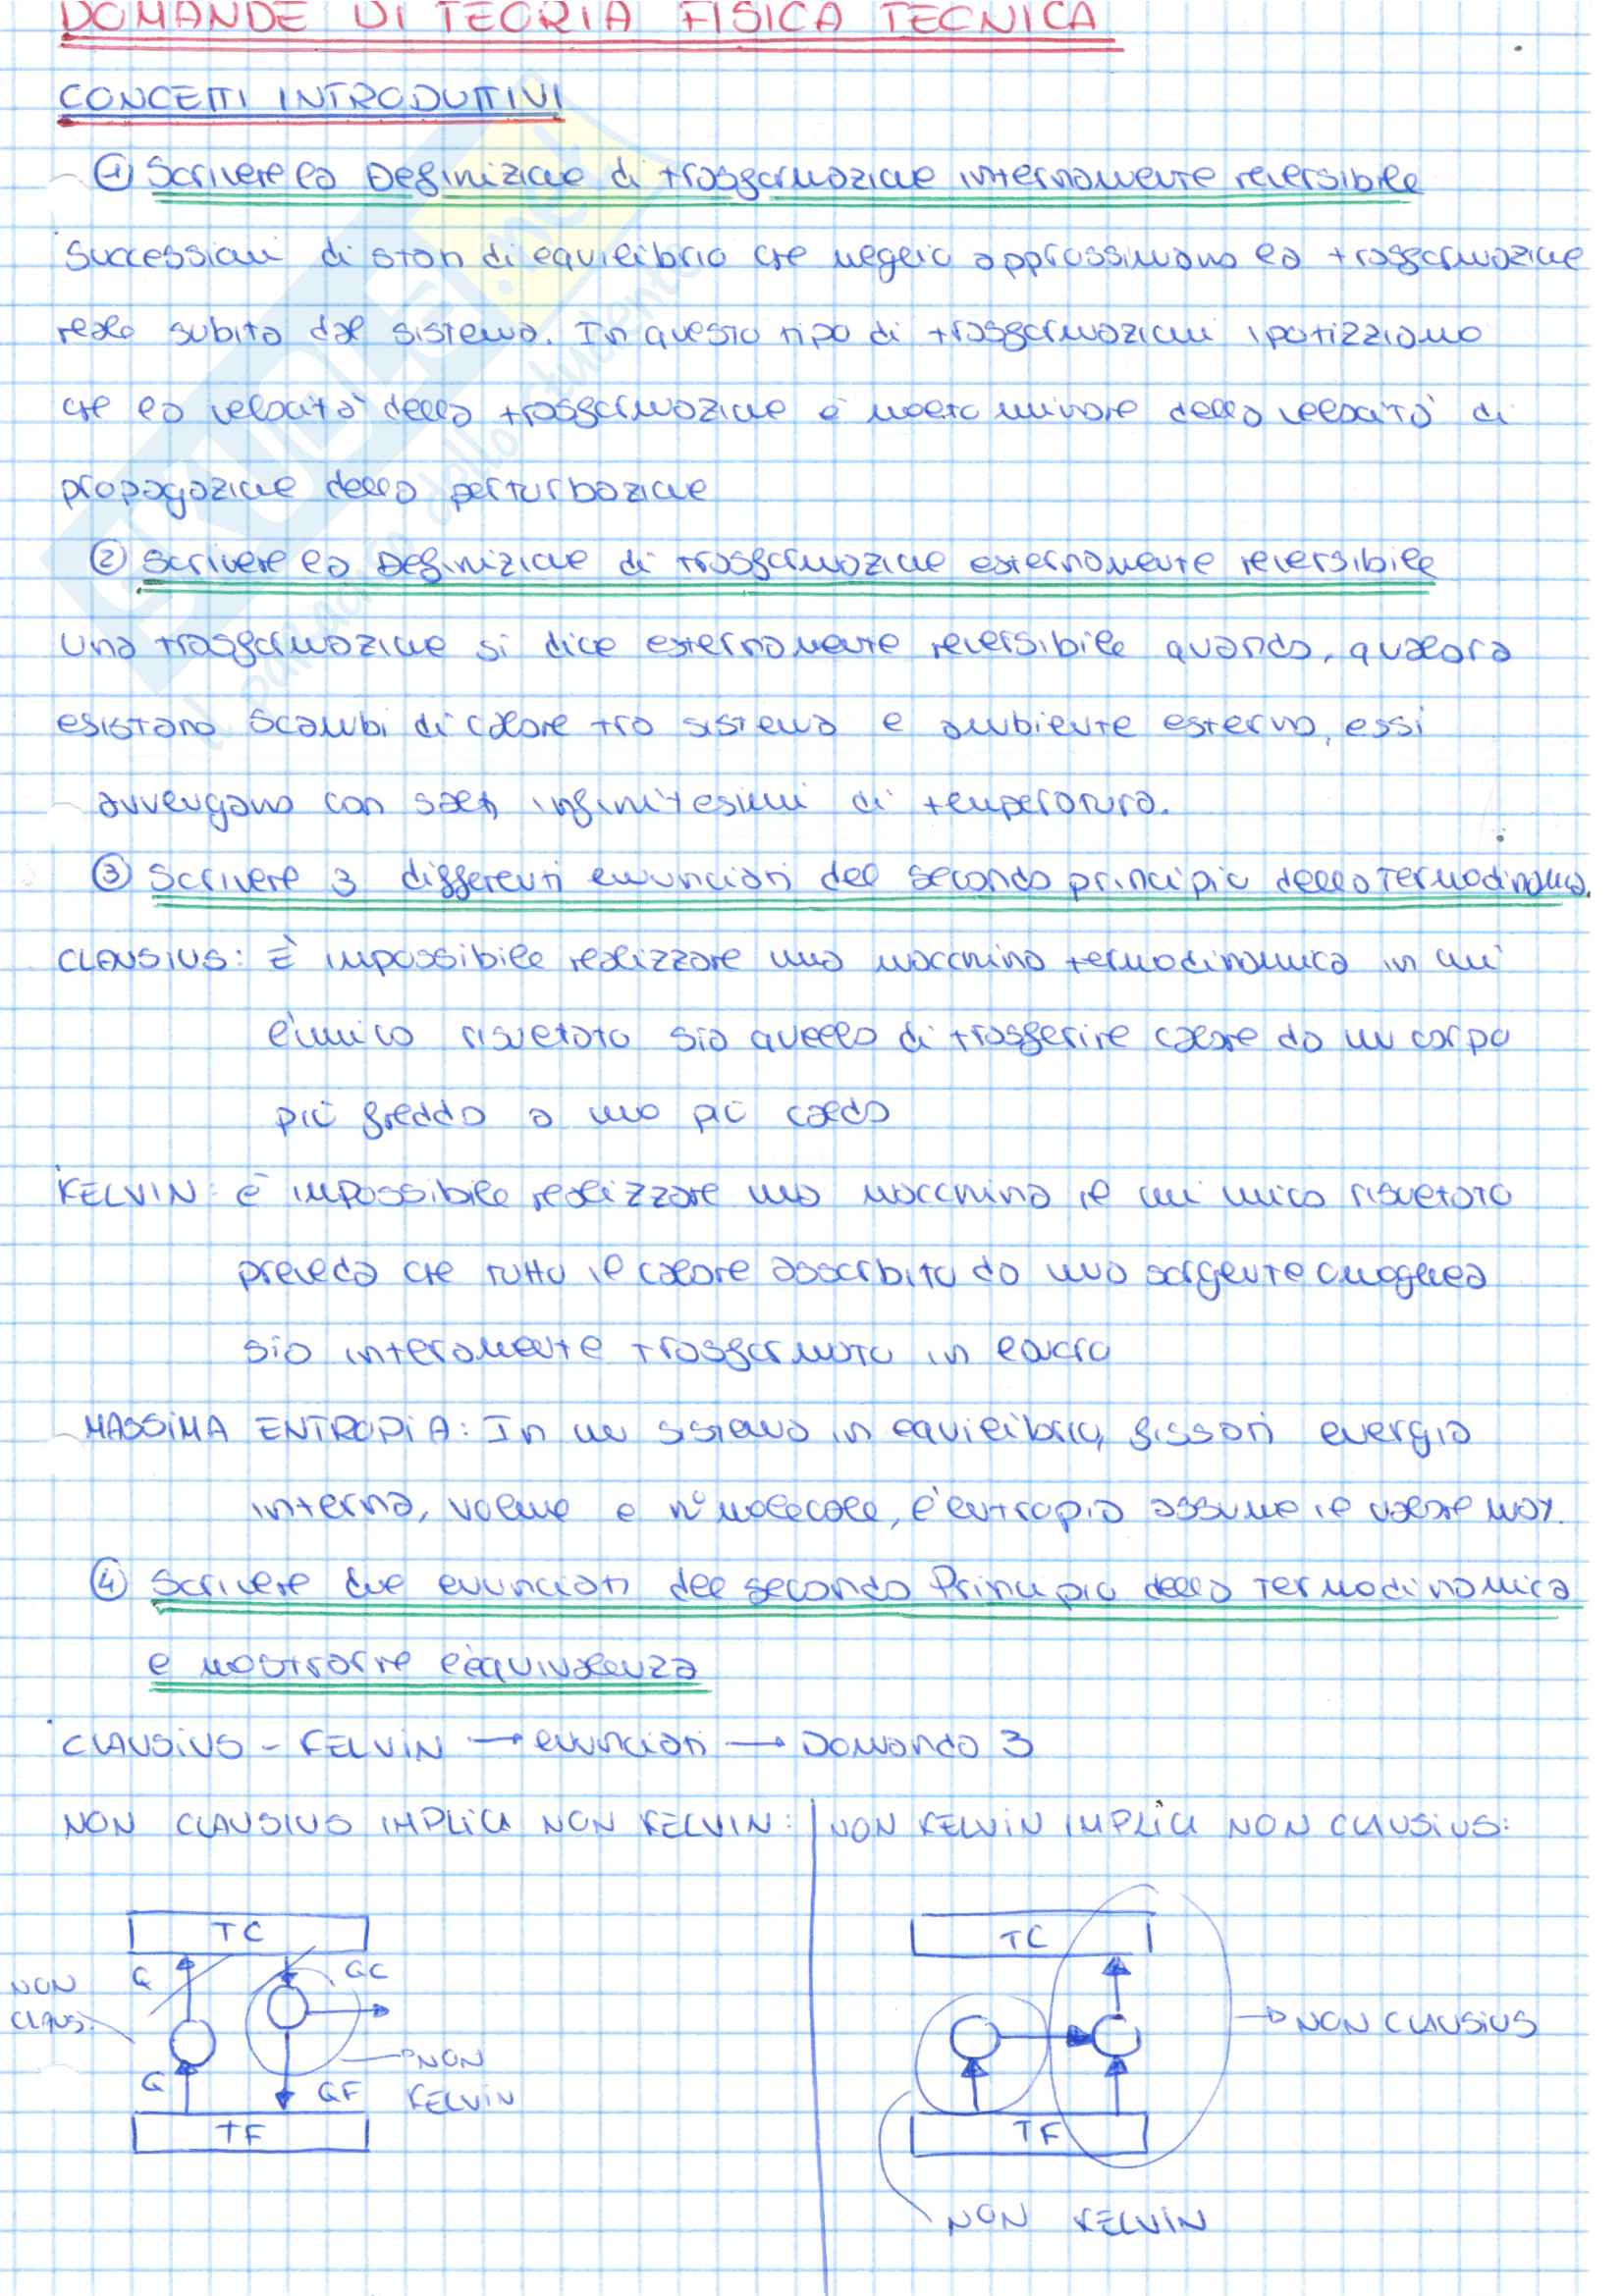 DOMANDE DI TEORIA FISICA TECNICA
CONCETTI INTRODUTTIVI
① Scrivere la Definizione di trasformazione internamente reversibile
Successioni di stati di equilibrio che meglio approssimano la trasformazione
reale subita dal sistema. In questo tipo di trasformazioni ipotizziamo
che la velocità della trasformazione è molto minore della velocità di
propagazione della perturbazione
② Scrivere la Definizione di trasformazione esternamente reversibile
Una trasformazione si dice esternamente reversibile quando, qualora
esistano scambi di calore tra sistema e ambiente esterno, essi
avvengano con salti infinitesimi di temperatura.
③ Scrivere 3 differenti enunciati del secondo principio della Termodinamica.
CLAUSIUS: È impossibile realizzare una macchina termodinamica in cui
l'unico risultato sia quello di trasferire calore da un corpo
più freddo a uno più caldo
KELVIN: è impossibile realizzare una macchina il cui unico risultato
preveda che tutto il calore assorbito da una sorgente omogenea
sia interamente trasformato in lavoro
MASSIMA ENTROPIA: In un sistema in equilibrio, fissati energia
interna, volume e n° molecole, l'entropia assume il valore max.
④ Scrivere due enunciati del secondo Principio della Termodinamica
e mostrarne l'equivalenza
CLAUSIUS - KELVIN → enunciati → Domanda 3
NON CLAUSIUS IMPLICA NON KELVIN: NON KELVIN IMPLICA NON CLAUSIUS:
TC TC
NON Q QC
CLAUS. NON CLAUSIUS
NON
Q QF KELVIN
TF TF
NON KELVIN
SKUOLA.net
il paradiso dello studente